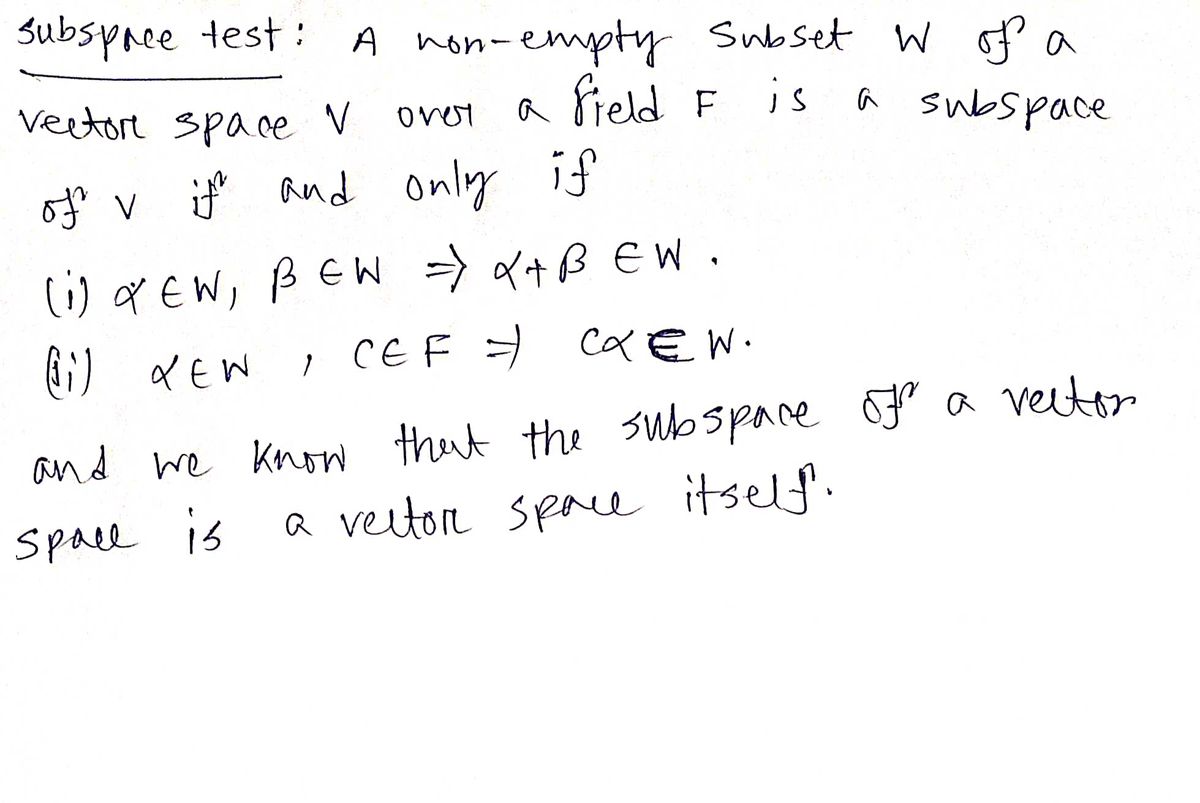 subspace test: A non-empty Subset W of a
vector space V over a field F is a subspace
of V if and only if
(i) α ∈ W, β ∈ W ⇒ α+β ∈ W.
(ii) α ∈ W, C ∈ F ⇒ Cα ∈ W.
and we know that the subspace of a vector
space is a vector space itself.